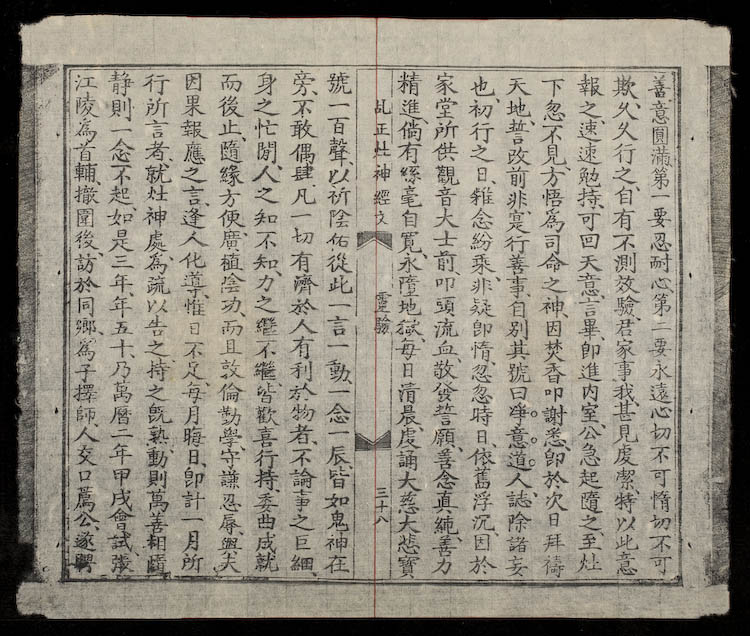 善意圓滿第一要忍耐心第二要永遠心切不可惰切不可
欺久久行之自有不測效驗君家事我甚見虔潔特以此意
報之速速勉持可回天意言畢卽進內室公急起隨之至灶
下忽不見方悟爲司命之神因焚香叩謝悉卽於次日拜禱
天地誓改前非寔行善事自別其號曰净意道人誌除諸妄
也初行之日雜念紛乘非疑卽惰忽忽時日依舊浮沉因於
家堂所供觀音大士前叩頭流血敬發誓願善念真純善力
精進倘有絲毫自寬永墮地獄每日清晨虔誦大慈大悲寶
乩正灶神經文
靈驗
三十八
號一百聲以祈陰佑從此一言一動一念一辰皆如鬼神在
旁不敢偶肆凡一切有濟於人有利於物者不論事之巨細
身之忙閒人之知不知力之繼不繼皆歡喜行持委曲成就
而後止隨緣方便廣植陰功而且敦倫勤學守謙忍辱與夫
因果報應之言逢人化導惟日不足每月晦日卽計一月所
行所言者就灶神處為疏以告之持之旣熟動則萬善相隨
静則一念不起如是三年年五十乃萬曆二年甲戌會試張
江陵為首輔撤闈後訪於同鄉為子擇師人交口薦公遂聘